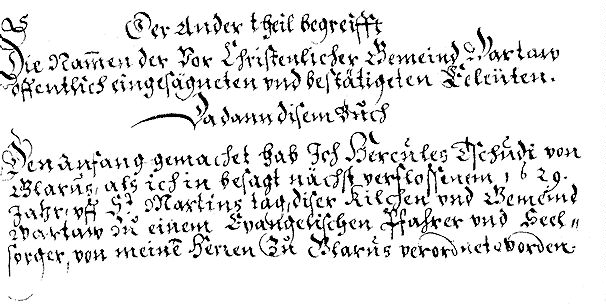 Der Ander theil begreifft
Die Nammen der Vor Christenlicher Gemeind Wartaw
öffentlich eingesägneten und bestätigeten Eeleüten.
Da dann disem Buch
Den anfang gemachet hab Ich Hercules Tschudi von
Glarus, als ich in besagt nächst verflossenem 1629.
Jahr, uff St Martins tag, diser Kilchen und Gemeind
Wartaw zu einem Evangelischen Pfahrer und Seel=
sorger, von meinen Herren zu Glarus verordnet worden.